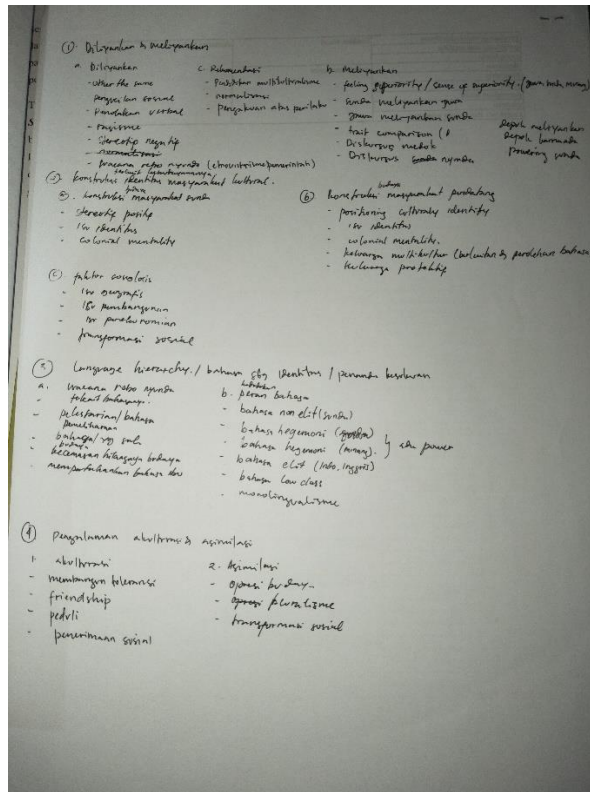 ① Diliyankan & meliyankan
a. Diliyankan
- other the same
pengucilan sosial
- Pendakuan verbal
- rasisme
- stereotip negatip
- normalisasi
- wacana rebo nyunda (etnosentrisme/pemerintah)
c. Rekomendasi
- Pendidikan multikulturalisme
- normalisasi
- pengakuan atas perilaku
b. meliyankan
- feeling superiority / sense of superiority (jawa, sunda, minang)
- sunda meliyankan jawa
- jawa meliyankan sunda
- trait comparison
- Diskursus medok
- Diskursus sunda nyunda
depok meliyankan
depok
powering sunda
② Konstruksi identitas masyarakat kultural.
a. konstruksi masyarakat sunda
- stereotip positip
- isu identitas
- colonial mentality
ⓑ Konstruksi budaya masyarakat pendatang
- positioning culturally identity
- isu identitas
- colonial mentality.
- keluarga multikultur & perolehan bahasa
- keluarga protektip
ⓒ faktor sosiologis
- isu geografis
- isu pembangunan
- isu perekonomian
- transformasi sosial
③ Language hierarchy / bahasa sbg identitas / penanda kesukuan
a. wacana rebo nyunda
- terkait bahasanya.
- pelestarian / bahasa
pemeliharaan
- bahasa
- kecemasan hilangnya budaya
- mempertahankan bahasa ibu
b. peran bahasa
- bahasa non elit (sunda)
- bahasa hegemoni
- bahasa hegemoni (minang). } adu power
- bahasa elit (Indo, inggris)
- bahasa low class
- monolingualisme
④ Pengalaman akulturasi & asimilasi
1. akulturasi
- membangun toleransi
- friendship
- peduli
- penerimaan sosial
2. Asimilasi
- opresi budaya
- opresi pluralisme
- transformasi sosial